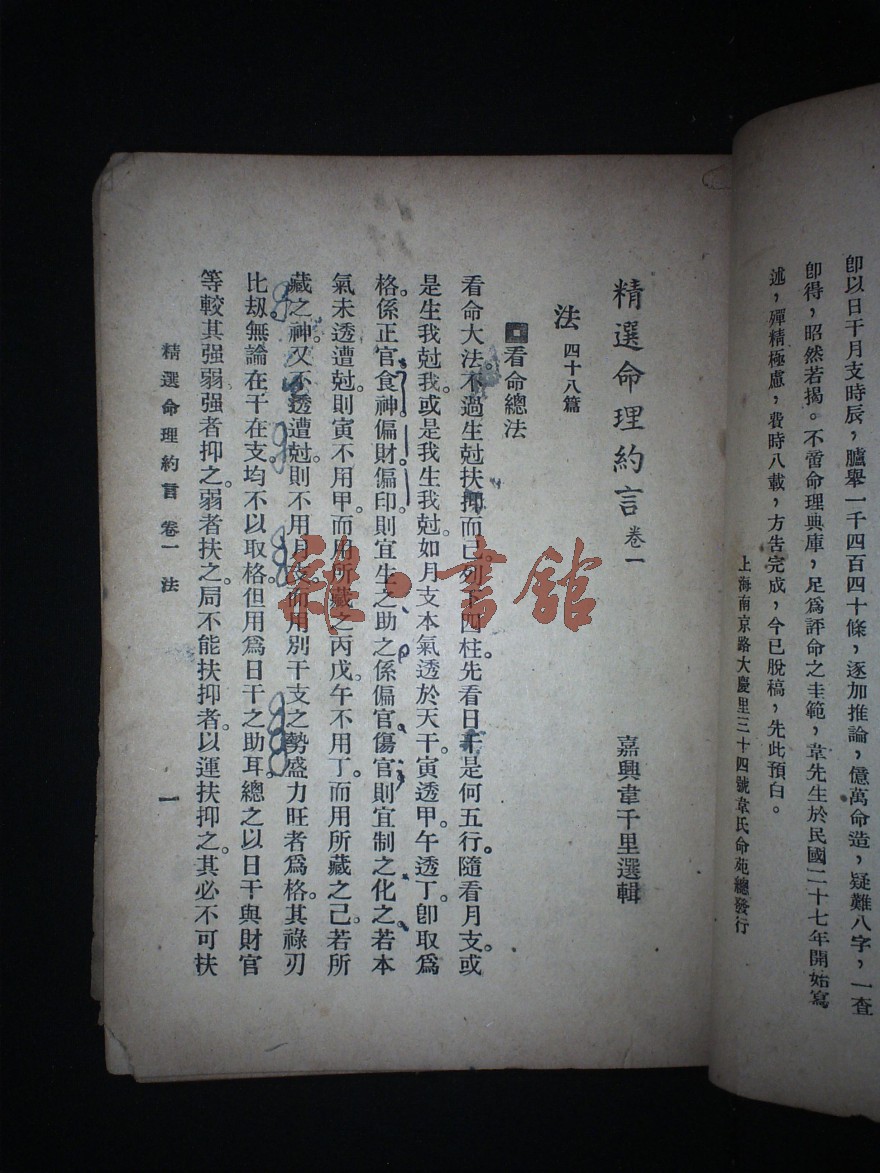 卽以日干月支時辰，臚舉一千四百四十條，逐加推論，億萬命造，疑難八字，一查
卽得，昭然若揭。不啻命理典庫，足爲評命之圭範，韋先生於民國二十七年開始寫
述，殫精極慮，費時八載，方告完成，今已脫稿，先此預白。
上海南京路大慶里三十四號韋氏命苑總發行
精選命理約言 卷一
嘉興韋千里選輯
法 四十八篇
看命總法
看命大法。不過生尅扶抑而已。列下四柱。先看日干。是何五行。隨看月支。或
是生我尅我。或是我生我尅。如月支本氣透於天干。寅透甲。午透丁。卽取爲
格。係正官食神偏財偏印。則宜生之助之。係偏官傷官。則宜制之化之。若本
氣未透遭尅。則寅不用甲。而用所藏之丙戊。午不用丁。而用所藏之己。若所
藏之神。又不透遭尅。則不用月支。而用別干支之勢盛力旺者爲格。其祿刃
比刼。無論在干在支。均不以取格。但用爲日干之助耳。總之以日干與財官
等較其强弱。强者抑之。弱者扶之。局不能扶抑者。以運扶抑之。其必不可扶
精選命理約言 卷一 法 一
雜·書館